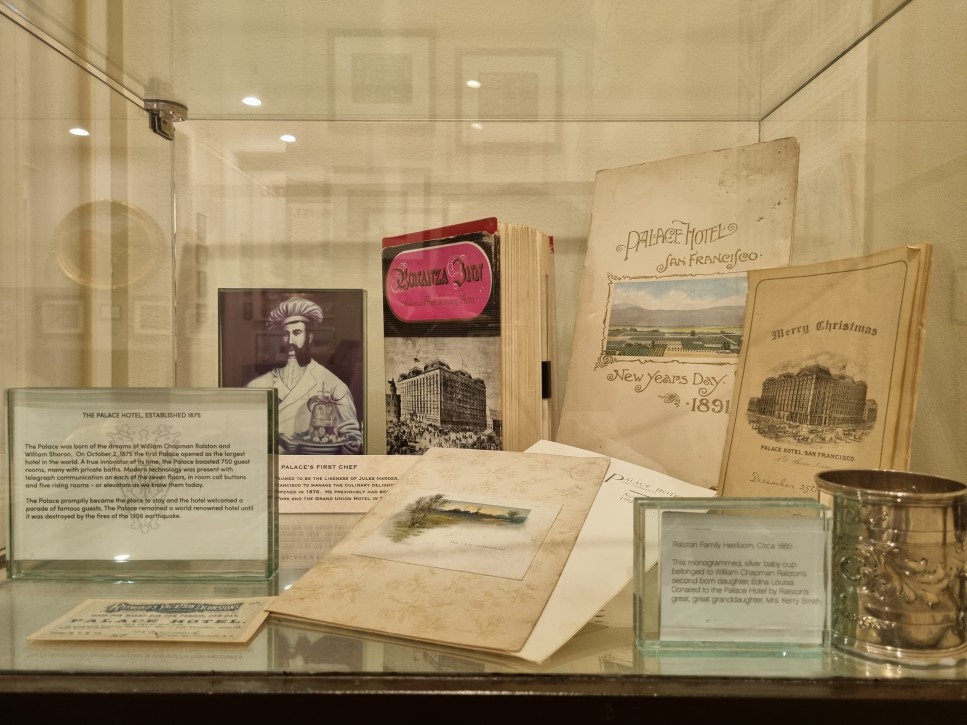 THE PALACE HOTEL, ESTABLISHED 1875
The Palace was born of the dreams of William Chapman Ralston and
William Sharon. On October 2, 1875 the first Palace opened as the largest
hotel in the world. A true innovator of its time, the Palace boasted 750 guest
rooms, many with private baths. Modern technology was present with
telegraph communication on each of the seven floors, in room call buttons
and five rising rooms – or elevators as we know them today.
The Palace promptly became the place to stay and the hotel welcomed a
parade of famous guests. The Palace remained a world renowned hotel until
it was destroyed by the fires of the 1906 earthquake.
PALACE'S FIRST CHEF
TO BE THE LIKENESS OF JULES HARDER,
TO MANAGE THE CULINARY DELIGHT
OPENED IN 1876. HE PREVIOUSLY HAD
AND THE GRAND UNION HOTEL IN
BONANZA INN
PALACE HOTEL
SAN FRANCISCO.
NEW YEARS DAY.
·1891
Merry Christmas
PALACE HOTEL, SAN FRANCISCO.
December 25
RAYMOND'S VACATION EXCURSIONS
PALACE HOTEL.
PALACE HOTEL
Ralston Family Heirloom, Circa 1860
This monogrammed, silver baby cup
belonged to William Chapman Ralston's
second born daughter, Edna Louisa.
Donated to the Palace Hotel by Ralston's
great, great granddaughter, Mrs. Kerry Smith.